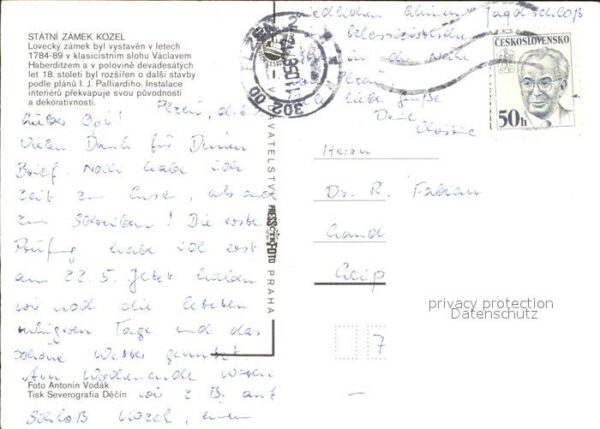 STÁTNÍ ZÁMEK KOZEL
Lovecký zámek byl vystavěn v letech
1784-89 v klasicistním slohu Václavem
Haberditzem a v polovině devadesátých
let 18. století byl rozšířen o další stavby
podle plánů I. J. Palliardiho. Instalace
interiérů překvapuje svou původností
a dekorativností.
Plzeň, d.
Vielen Dank für Deinen
Brief. Noch habe ich
Zeit zum
zum Schreiben! Die erste
Prüfung habe ich erst
am 22.5. Jetzt haben
wir noch die letzten
ruhigen Tage und das
schöne Wetter genutzt
Am Wochenende waren
wir z.B. auf
Schloß Kozel, einem
Foto Antonín Vodák
Tisk Severografia Děčín
niedlichen kleinen Jagdschloß
in der Nähe
Plzeň
liebe Grüße
Deine
VYDAVATELSTVÍ
PRESSFOTO
PRAHA
PLZEŇ 1
302 00
ČESKOSLOVENSKO
50h
Herrn
Dr. R. Fabian
Leip
7
privacy protection
Datenschutz